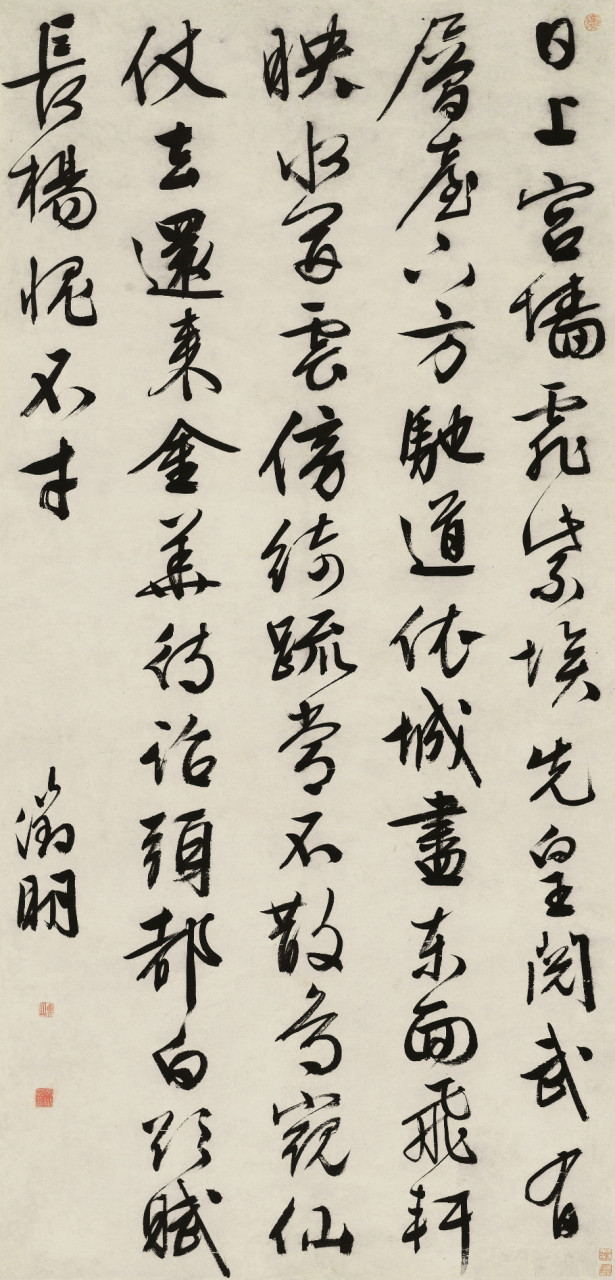 日上宮墻霏紫埃先皇閱武有
層臺下方馳道依城盡東面飛軒
映水開雲傍綺疏常不散鳥窺仙
仗去還來金華待詔頭都白欲賦
長楊愧不才
徵明